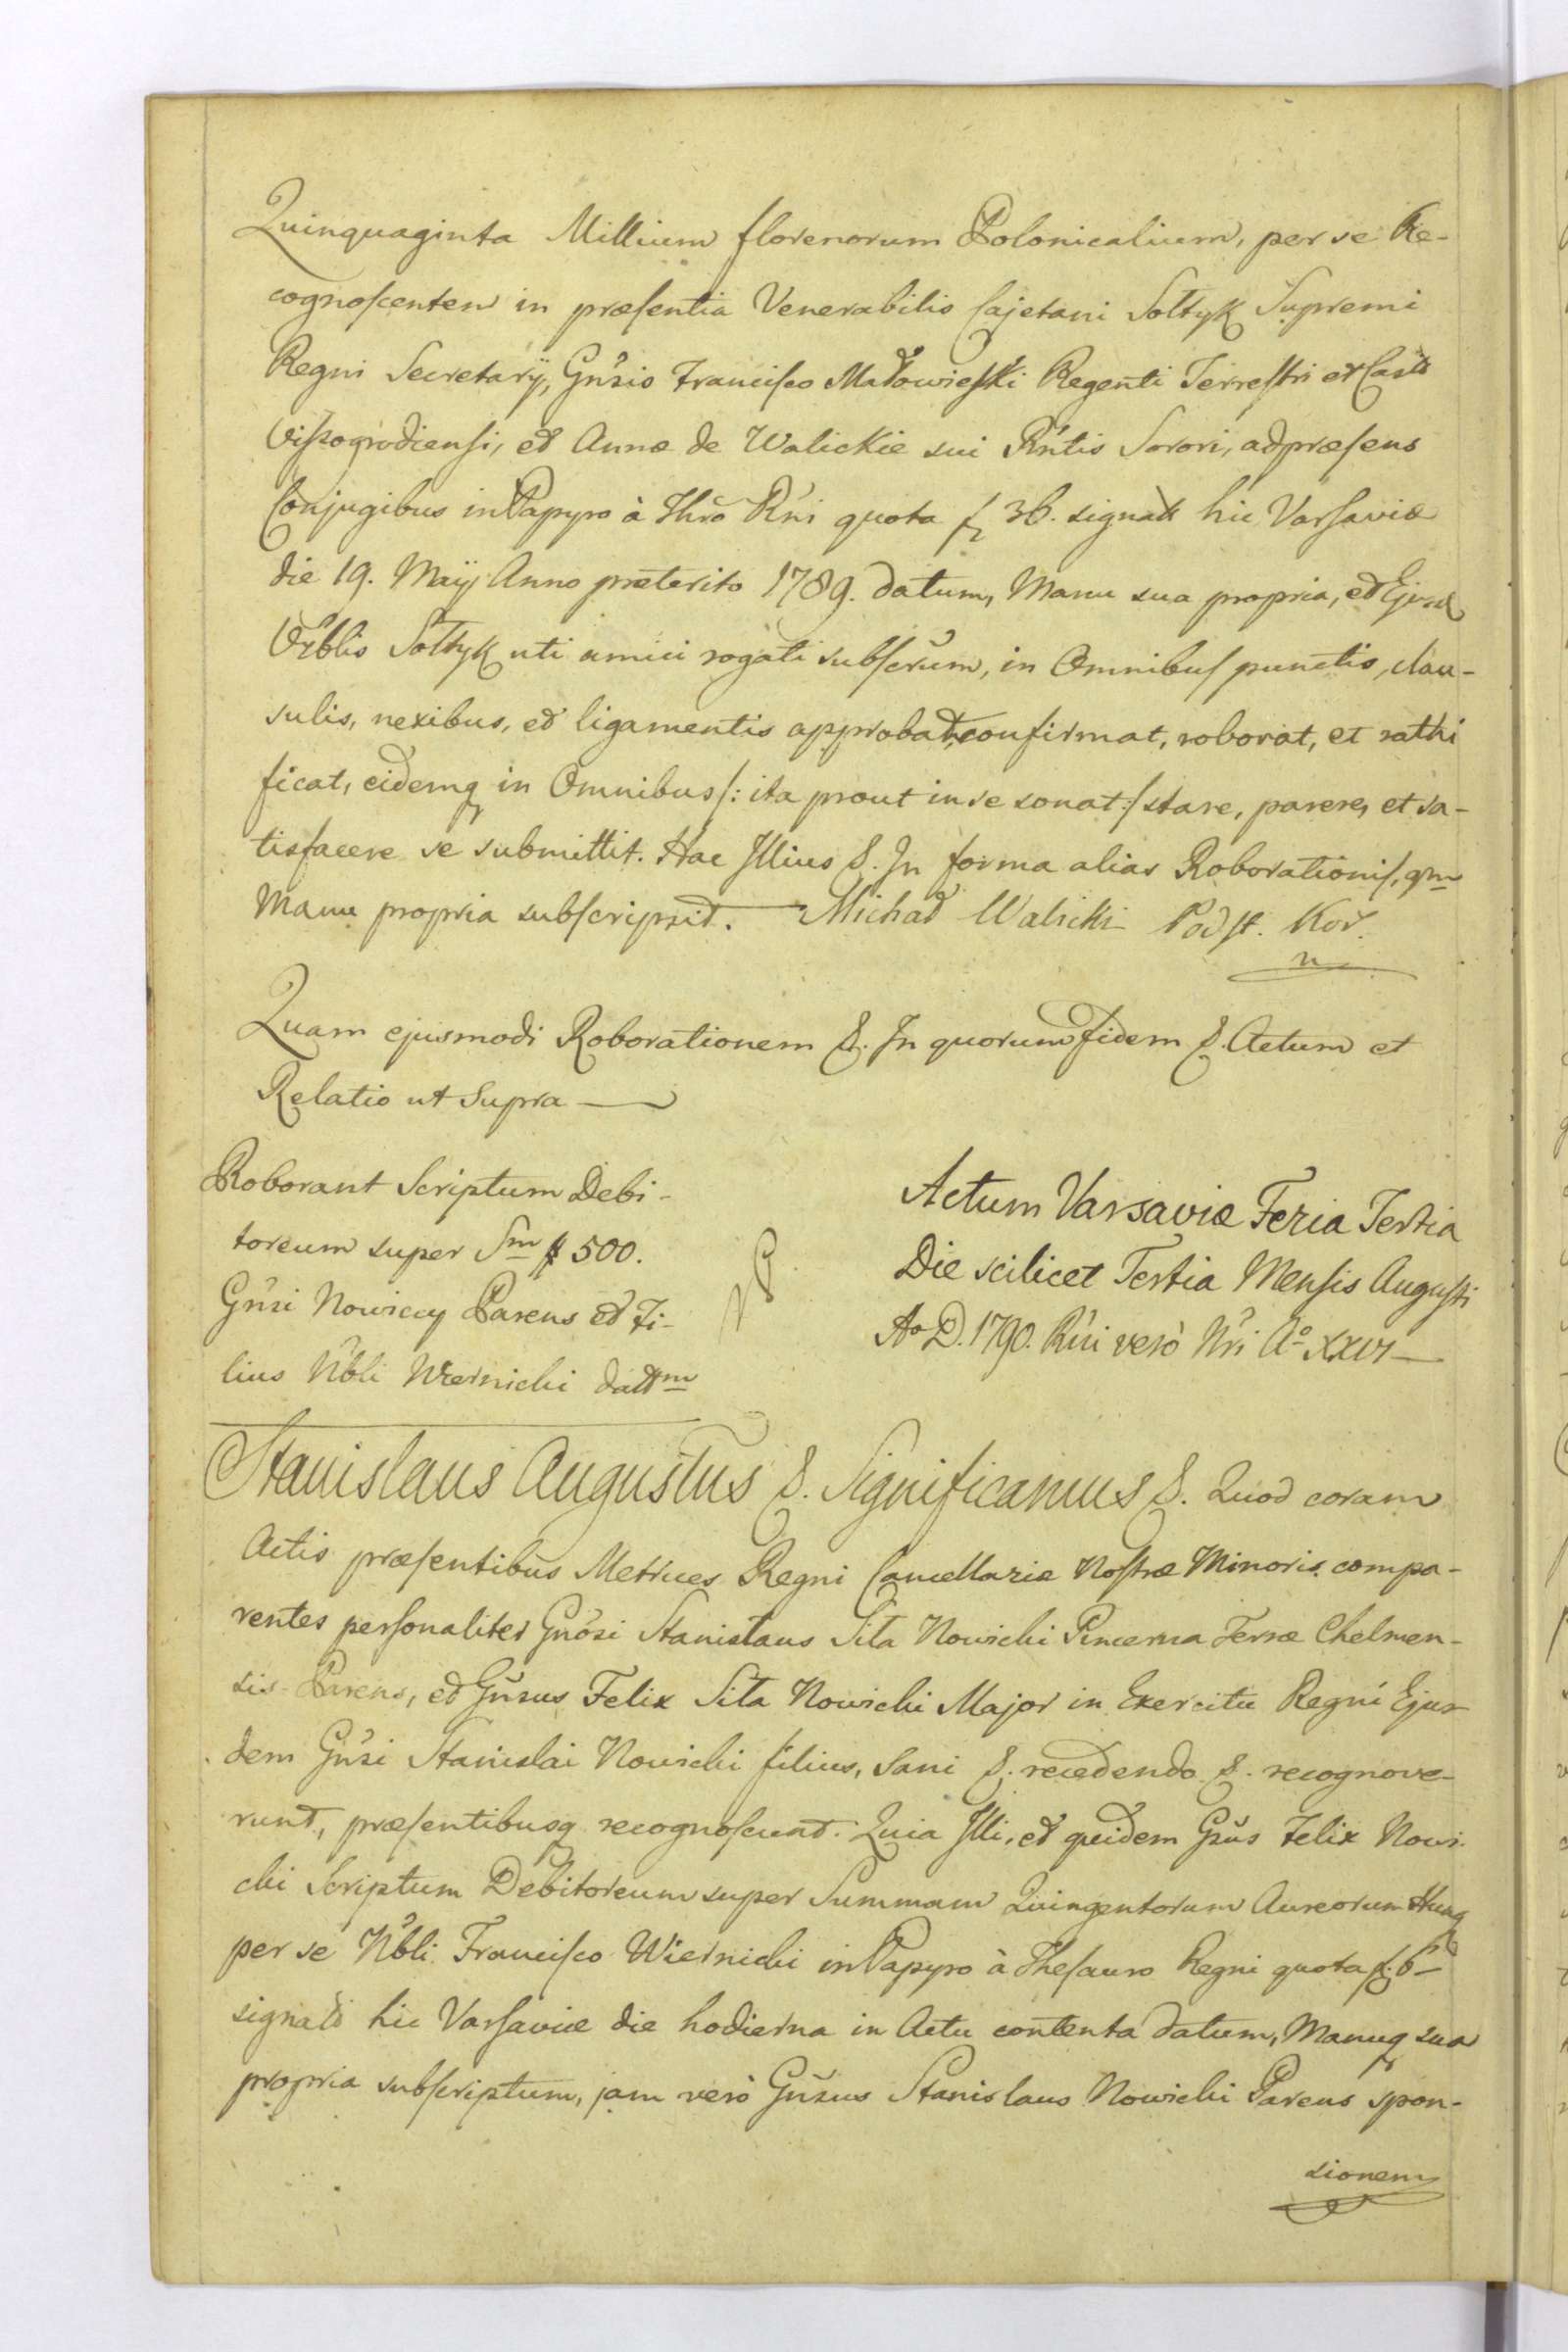 Quinquaginta Millium florenorum Polonicalium, per se Re-
cognoscentem in præsentia Venerabilis Cajetani Sołtyk Supremi
Regni Secretarÿ, Gnsis Francisco Małowieski Regenti Terrestri et Casti
Vissogrodiensi, et Annæ de Walickie sui Rntis Sorori, ad præsens
Conjugibus in Papyro à Thro Rni quota f 36. signati hic Varsaviæ
die 19. Maÿ Anno præterito 1789. datum, Manu sua propria, et Ejusd
Vrblis Sołtyk uti amici rogati subscrum, in Omnibus punctis, clau-
sulis, nexibus, et ligamentis approbat, confirmat, roborat, et rathi
ficat, eidemq in Omnibus /: ita prout in se sonat :/ stare, parere, et sa-
tisfacere se submittit. Hac Illius &. In forma alias Roborationis, qm
Manu propria subscripsit. Michał Walicki Podst. Kor.
mp
Quam ejusmodi Roborationem &. In quorum fidem &. Actum et
Relatio ut Supra
Roborant Scriptum Debi-
toreum super Sm # 500.
Gnsi Nowiccy Parens et Fi-
lius Nbli Wiernicki dattm
Actum Varsaviæ Feria Tertia
Die scilicet Tertia Mensis Augusti
Ao D. 1790. Rni verò Nri Ao XXVI
Stanislaus Augustus &. Significamus &. Quod coram
Actis præsentibus Metrices Regni Cancellariæ Nostræ Minoris compa-
rentes personaliter Gnosi Stanislaus Sita Nowicki Pincerna Terræ Chelmen-
sis Parens, et Gnsus Felix Sita Nowicki Major in Exercitu Regni Ejus-
dem Gnsi Stanislai Nowicki filius, Sani &. recedendo &. recognove-
runt, præsentibusq recognoscunt. Quia Illi, et quidem Gsus Felix Nowi-
cki Scriptum Debitoreum super Summam Quingentorum Aureorum Hung
per se Nbli Francisco Wiernicki in Papyro à Thesauro Regni quota f. 6
signati hic Varsaviæ die hodierna in Actu contenta datum, Manuq sua
propria subscriptum, jam verò Gnsus Stanislaus Nowicki Parens spon-
sionem